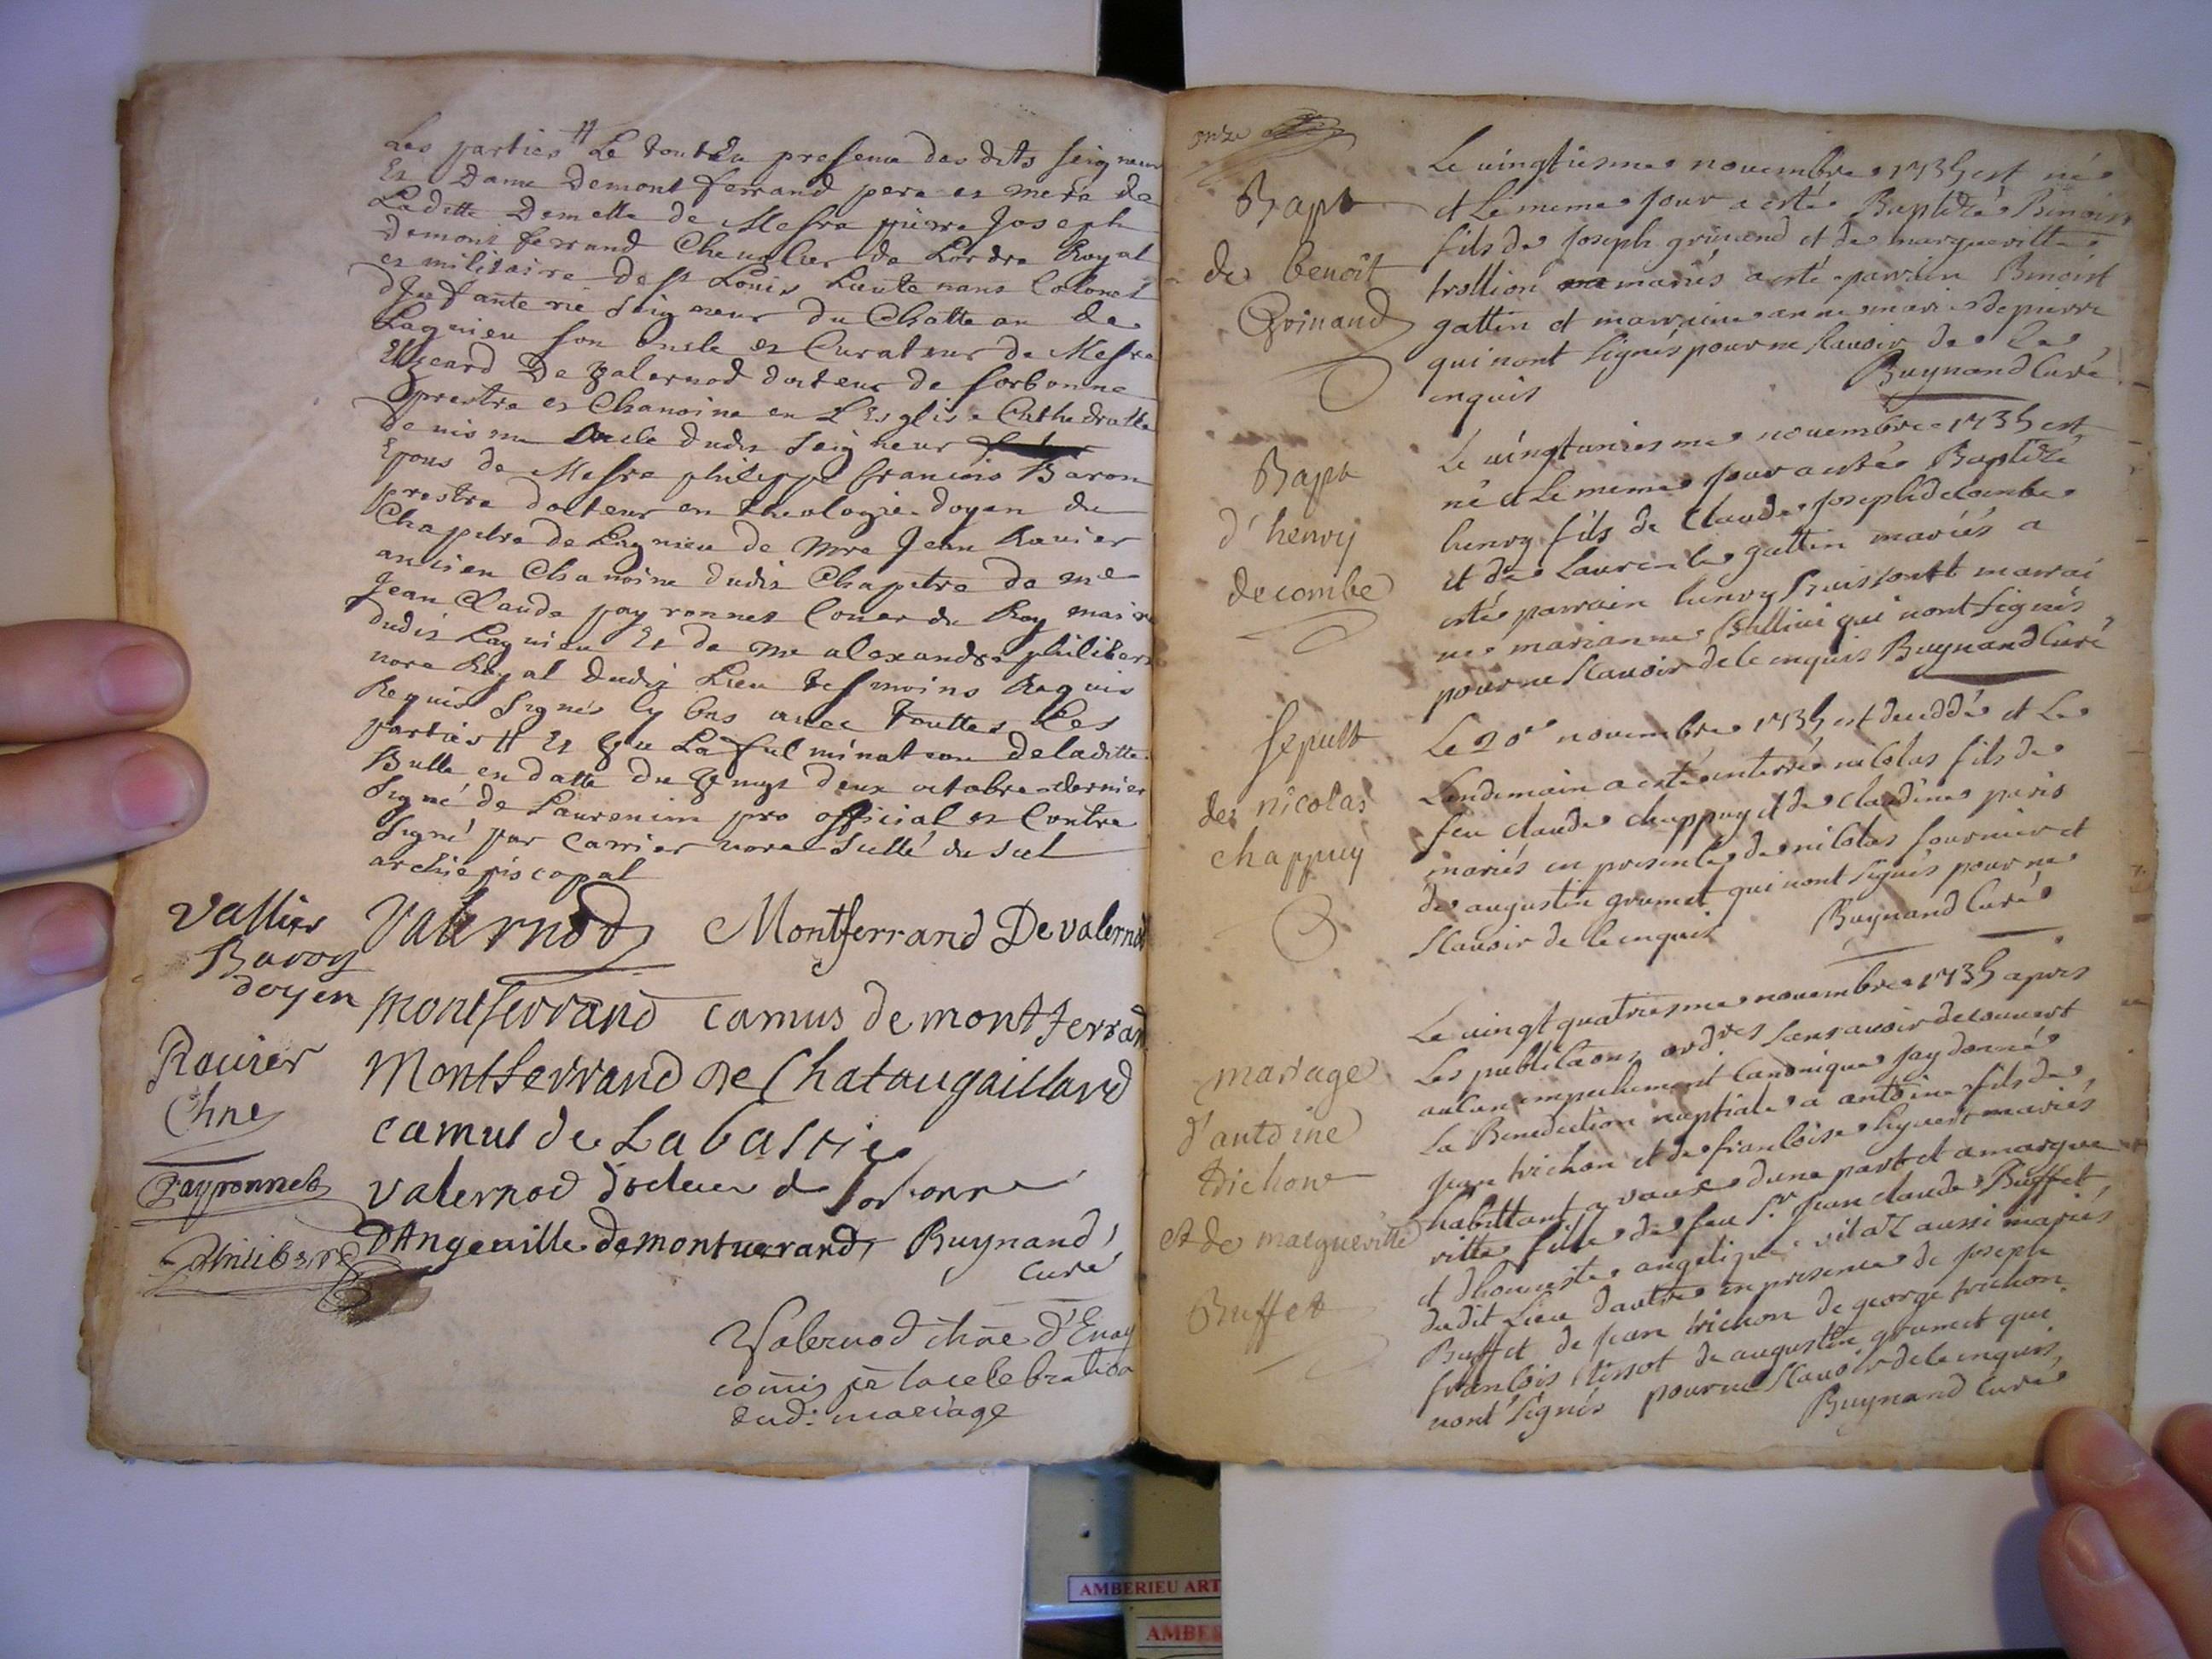 Les parties # Le tout En presence des dits seigneur
Et Dame Demontferrand pere et mere de
Laditte Demelle de Messre pierre Joseph
Demontferrand Chevalier de Lordre Royal
et militaire de st Louis Lieutenant Colonel
d'Infanterie Seigneur du Chatteau de
Lagnieu son oncle et Curateur de Messre
Elzeard De Valernod docteur de sorbonne
prestre et Chanoine en L'Esglise Cathedralle
de nisme oncle dudit seigneur
Epous de Messre philippe francois Baron
prestre docteur en theologie doyen du
Chapitre de Lagnieu de mre Jean Ravier
ancien Chanoine dudit Chapitre de me
Jean Claude payronnet Coner du Roy maire
dudit Lagnieu Et de me alexandre philibert
nore Royal dudit Lieu tesmoins Requis
Requis signés cy bas avec touttes Les
parties # Et que La fulmination de laditte
Bulle en datte du vingt deux octobre dernier
signé de Laurencin pro official et Contre
signé par Carrier nore scellé du scel
archiepiscopal
Vallier
Baron
doyen
Valernod Montferrand De valernod
montferrand camus de montferrand
Ravier
Chne
Montferrand de Chataugaillard
camus de Labastie
Payronnet
valernod docteur de sorbonne
Philibert
DAngeville demontverrand, Buynand
Curé
Valernod chne d'Enay
commis pr la celebration
dud. mariage
onze
Bapt
de benoit
Grinand
Le vingtiesme novembre 1735 est né
et Le meme jour a esté Baptizé Benoist
fils de Joseph grinand et de margueritte
trollion mariés a esté parrain Benoist
gattin et marraine anne marie depierre
qui nont signés pour ne scavoir de ce
enquis Buynand Curé
Bapt
d'henry
decombe
Le vingtuniesme novembre 1735 est
né et Le meme jour a esté Baptizé
henry fils de Claude Joseph decombe
et de Laurence gattin mariés a
esté parrain henry Buissont et marrai
ne marianne Ballieu qui nont signés
pour ne scavoir de ce enquis Buynand Curé
sepult
de nicolas
chappuy
Le 20e novembre 1735 est deceddé et Le
Lendemain a esté enterré nicolas fils de
feu claude chappuy et de claudine paris
mariés en presence de nicolas fournier et
de augustin grumet qui nont signés pour ne
scavoir de ce enquis Buynand Curé
mariage
d'antoine
trichon
et de margueritte
Buffet
Le vingt quatriesme novembre 1735 apres
Les publicaons ordres sans avoir decouvert
aucun empechement Canonique Jay donné
La Benediction nuptiale a antoine fils de
Jean trichon et de francoise liguert mariés
habittant a vaux dune part et a margue
ritte fille de feu Sr Jean claude Buffet
et dhonneste angelique vitaz aussi mariés
dudit Lieu dautre en presence de Joseph
Buffet de Jean trichon de george trichon
francois tissot de augustin grumet qui
nont signés pour ne scavoir de ce enquis
Buynand Curé
AMBERIEU ART